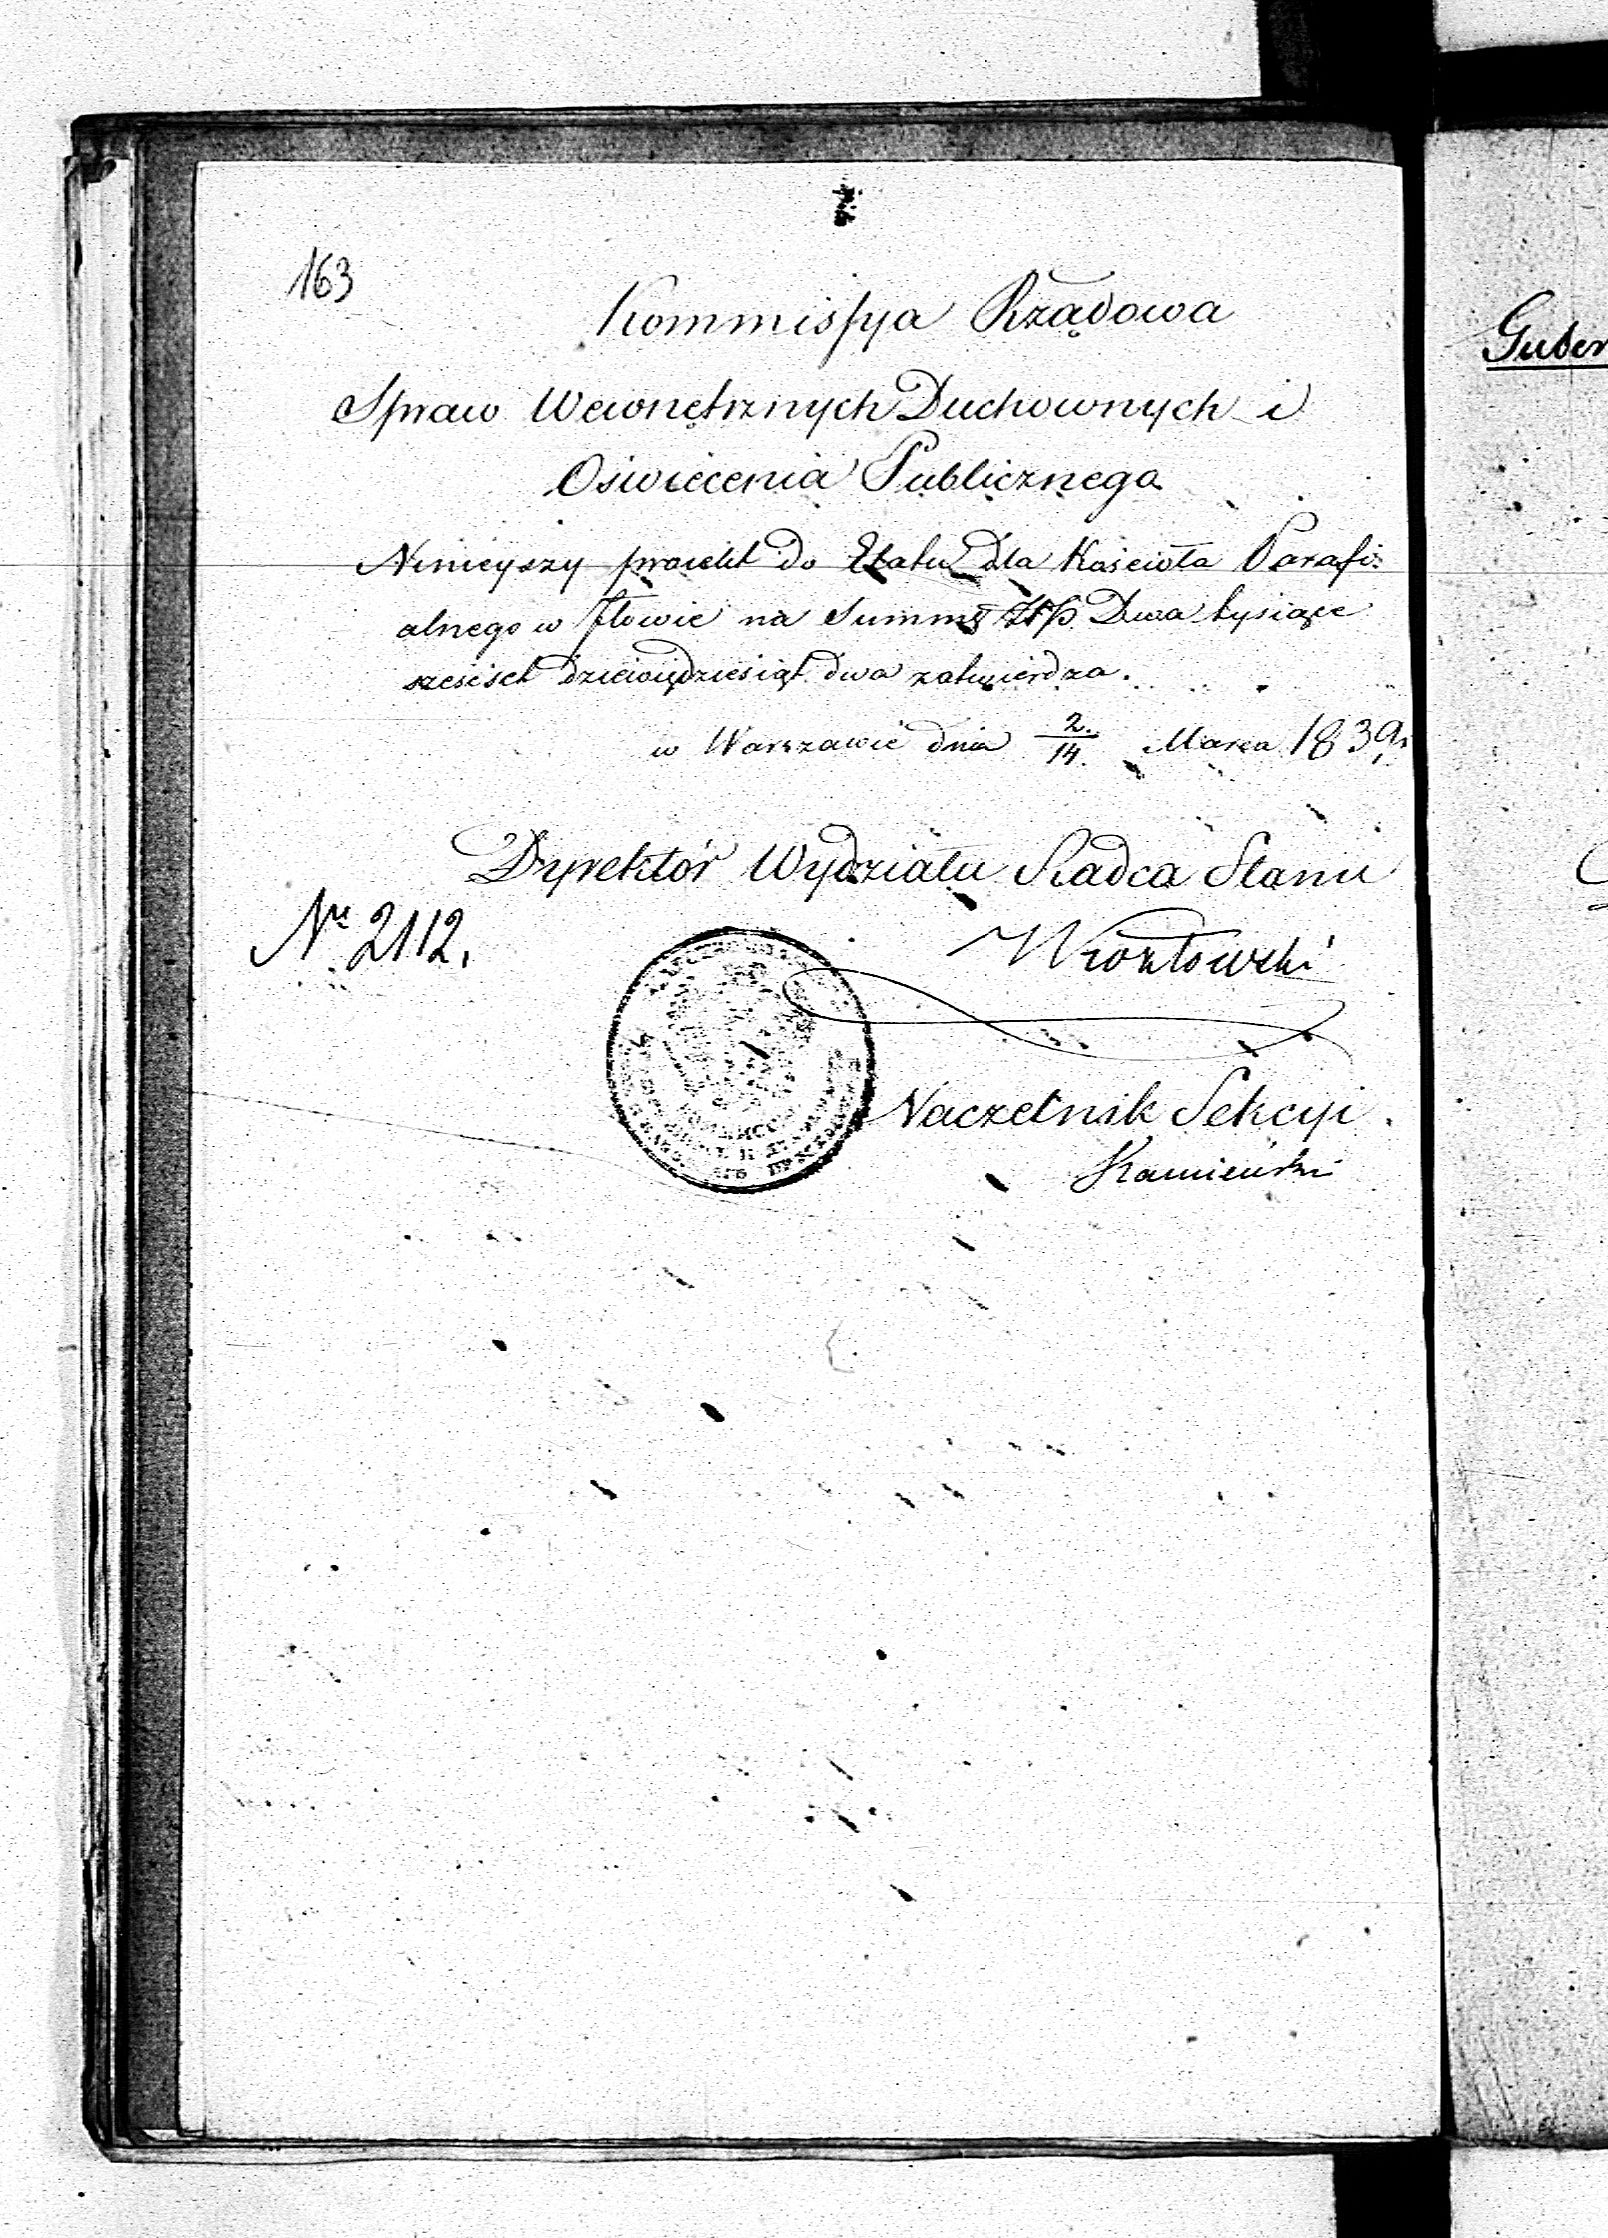 163
Kommissya Rządowa
Spraw Wewnętrznych Duchownych i
Oświecenia Publicznego
Ninieyszy proiekt do Etatu dla Kościoła Parafi:
alnego w Iłowie na Summę Złp. Dwa tysiące
sześćset dziewięćdziesiąt dwa zatwierdza.
w Warszawie dnia 2/14. Marca 1839 r.
Dyrektór Wydziału Radca Stanu
Nr 2112.
Kozłowski
Naczelnik Sekcyi
Kamieński
Guber